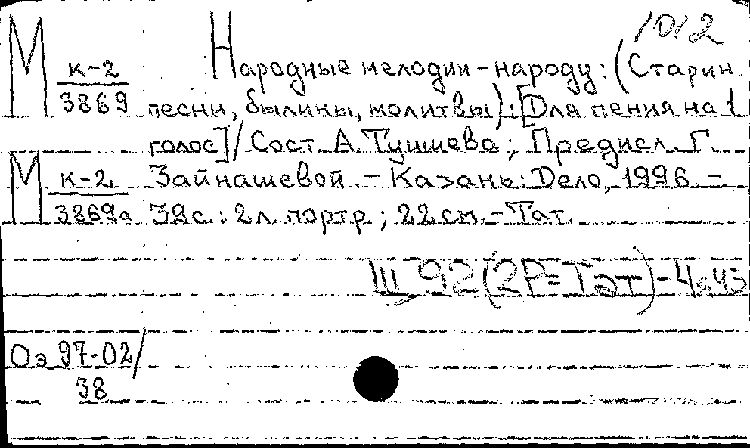 1012
М к-2 Народные мелодии - народу: (Старин.
3869 песни, былины, молитвы): [Для пения на 1
голос] / Сост. А. Тушиева; Предисл. Г.
М к-2 Зайнашевой. - Казань: Дело, 1996. -
3869а 38 с.: 2 л. портр.; 22 см. - Тат.
Ш 92(2Р=Тат)-4
Оэ 97-02/
38